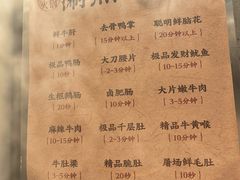 火锅涮烫
鲜牛肝 去骨鸭掌 聪明鲜脑花
[10秒] [15分钟以上] [20分钟以上]
极品鸭肠 大刀腰片 极品发财鱿鱼
[10秒] [2-3分钟] [10-15秒]
生抠鹅肠 卤肥肠 大片嫩牛肉
[20秒] [10-15分钟] [3-5分钟]
麻辣牛肉 极品千层肚 精品牛黄喉
[10-15分钟] [2-3分钟] [10-15秒]
牛肚梁 精品脆肚 屠场鲜毛肚
[3-5分钟] [20秒] [10秒]